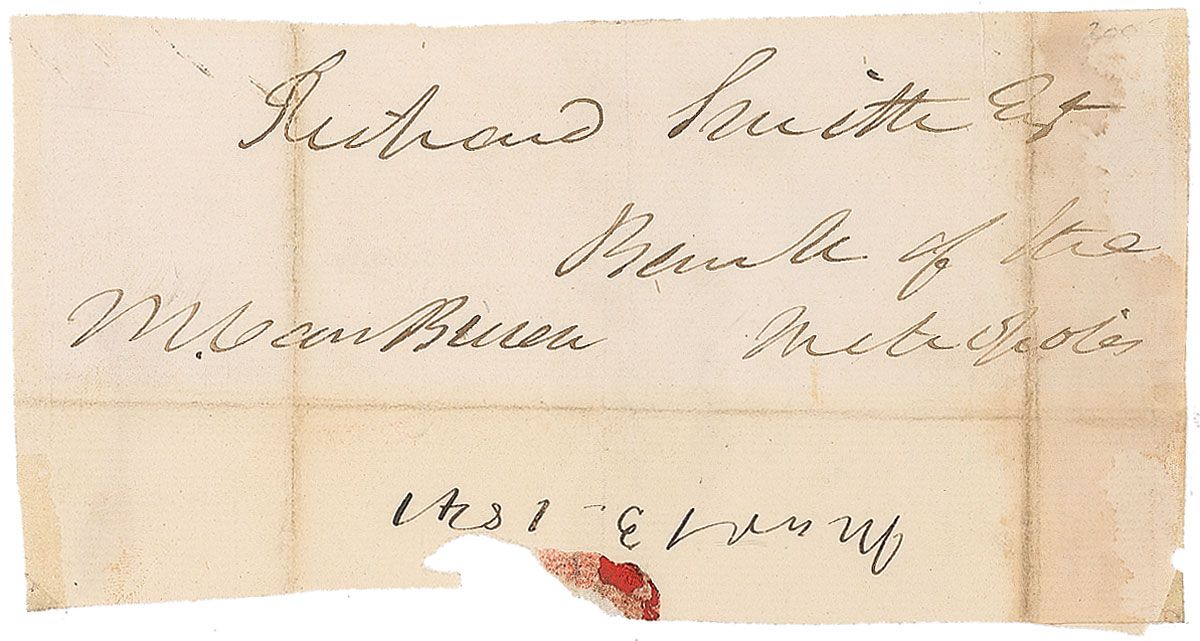 Richard Smith Esq
Bank of the
M. Van Buren Metropolis
March 3 - 1841